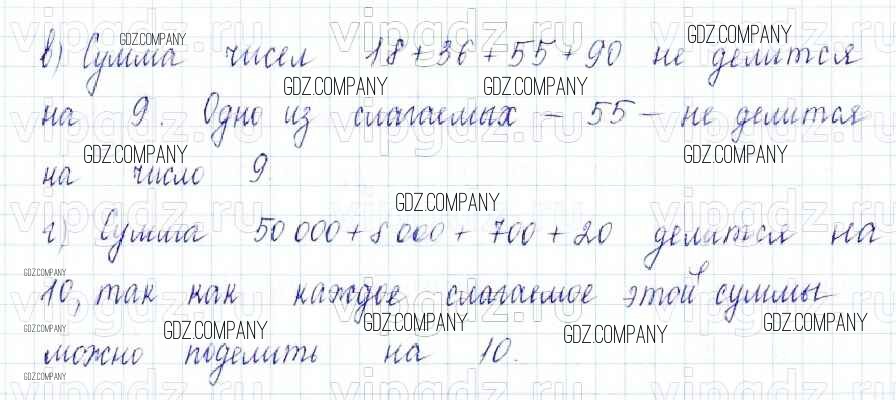 в) Сумма чисел 18+36+55+90 не делится
на 9. Одно из слагаемых – 55 – не делится
на число 9.
г) Сумма 50 000 + 8 000 + 700 + 20 делится на
10, так как каждое слагаемое этой суммы
можно поделить на 10.
GDZ.COMPANY
GDZ.COMPANY
GDZ.COMPANY
GDZ.COMPANY
GDZ.COMPANY
GDZ.COMPANY
GDZ.COMPANY
GDZ.COMPANY
GDZ.COMPANY
GDZ.COMPANY
GDZ.COMPANY
GDZ.COMPANY
GDZ.COMPANY
GDZ.COMPANY
vipgdz.ru
vipgdz.ru
vipgdz.ru
vipgdz.ru
vipgdz.ru